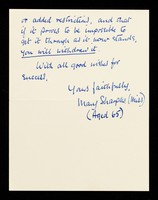 or added restrictions, and that
if it proves to be impossible to
get it through as it now stands,
you will withdraw it.
With all good wishes for
success,
Yours faithfully,
Mary Sharples (Miss)
(Aged 65)